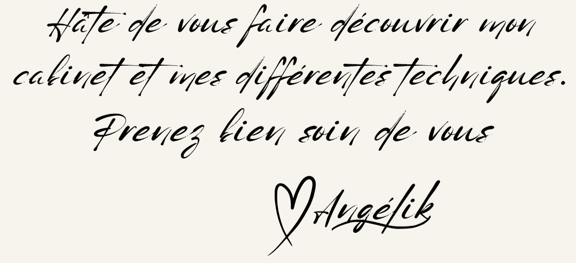 Hâte de vous faire découvrir mon
cabinet et mes différentes techniques.
Prenez bien soin de vous
Angélik